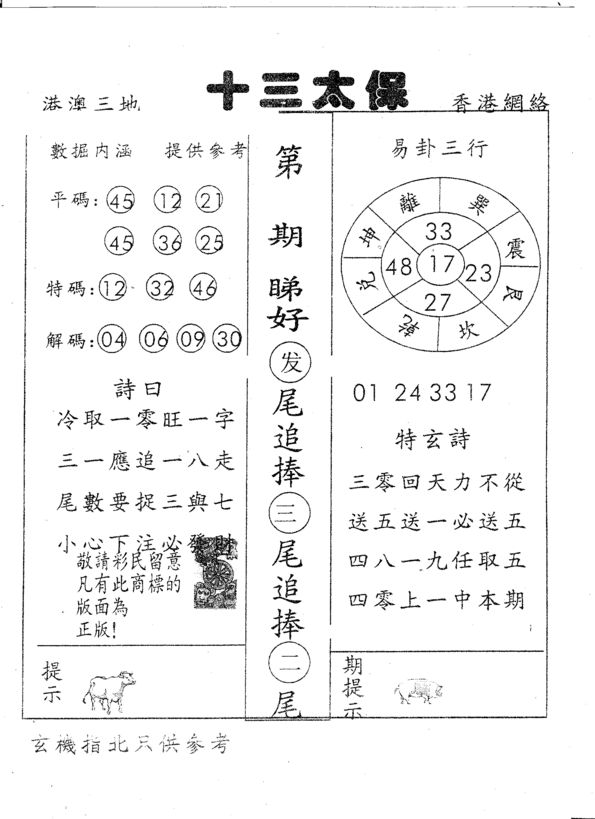 港澳三地
十三太保
香港網絡
數据内涵 提供參考
平碼: 45 12 21
45 36 25
特碼: 12 32 46
解碼: 04 06 09 30
詩曰
冷取一零旺一字
三一應追一八走
尾數要捉三與七
小心下注必發財
敬請彩民留意
凡有此商標的
版面為
正版!
提示
第
期
睇好
发
尾追捧
三
尾追捧
二
尾
易卦三行
離 巽 震 艮 坎 乾 兌 坤
33
48 17 23
27
01 24 33 17
特玄詩
三零回天力不從
送五送一必送五
四八一九任取五
四零上一中本期
期提示
玄機指北只供參考